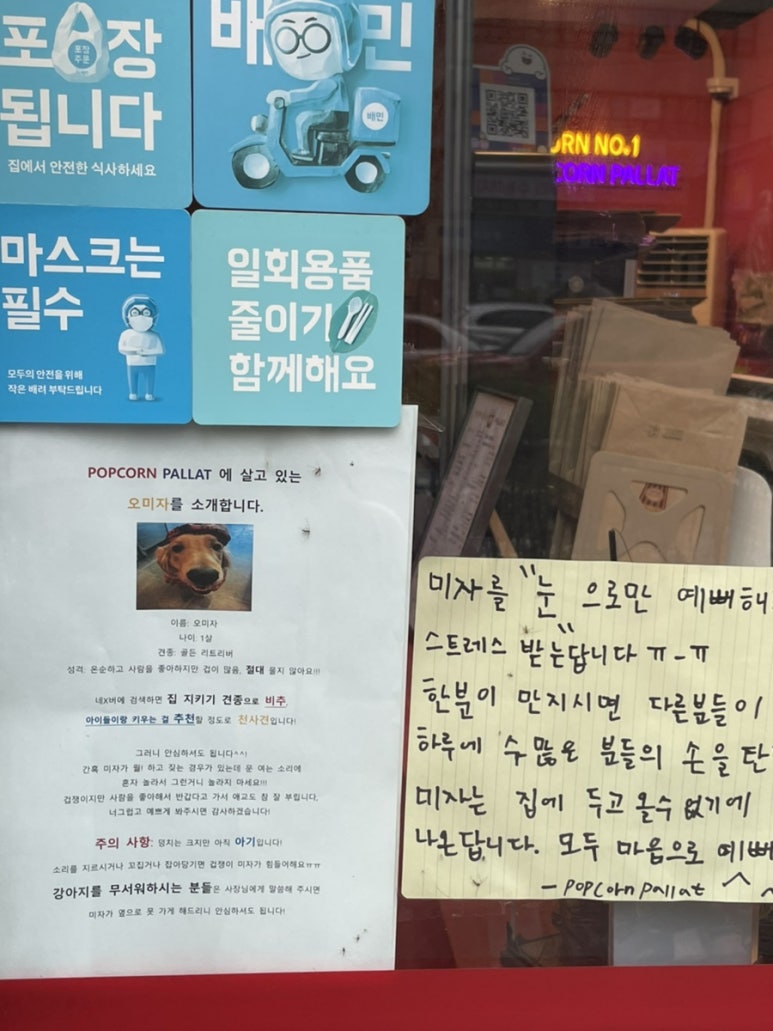 포장
포장
주문
됩니다
집에서 안전한 식사하세요
배민
배민
마스크는
필수
모두의 안전을 위해
작은 배려 부탁드립니다
일회용품
줄이기
함께해요
ORN NO.1
CORN PALLAT
POPCORN PALLAT 에 살고 있는
오미자를 소개합니다.
이름: 오미자
나이: 1살
견종: 골든 리트리버
성격: 온순하고 사람을 좋아하지만 겁이 많음, 절대 물지 않아요!!!
네X버에 검색하면 집 지키기 견종으로 비추,
아이들이랑 키우는 걸 추천할 정도로 천사견입니다!
그러니 안심하셔도 됩니다^^!
간혹 미자가 월! 하고 짖는 경우가 있는데 문 여는 소리에
혼자 놀라서 그런거니 놀라지 마세요!!!
겁쟁이지만 사람을 좋아해서 반갑다고 가서 애교도 참 잘 부립니다.
너그럽고 예쁘게 봐주시면 감사하겠습니다!
주의 사항: 덩치는 크지만 아직 아기입니다!
소리를 지르시거나 꼬집거나 잡아당기면 겁쟁이 미자가 힘들어해요ㅠㅠ
강아지를 무서워하시는 분들은 사장님에게 말씀해 주시면
미자가 옆으로 못 가게 해드리니 안심하셔도 됩니다!
미자를 "눈"으로만 예뻐해
스트레스 받는답니다 ㅠ-ㅠ
한분이 만지시면 다른분들이
하루에 수많은 분들의 손을 탄
미자는 집에 두고 올수 없기에
나온답니다. 모두 마음으로 예뻐
- POPCorn pallat ^^